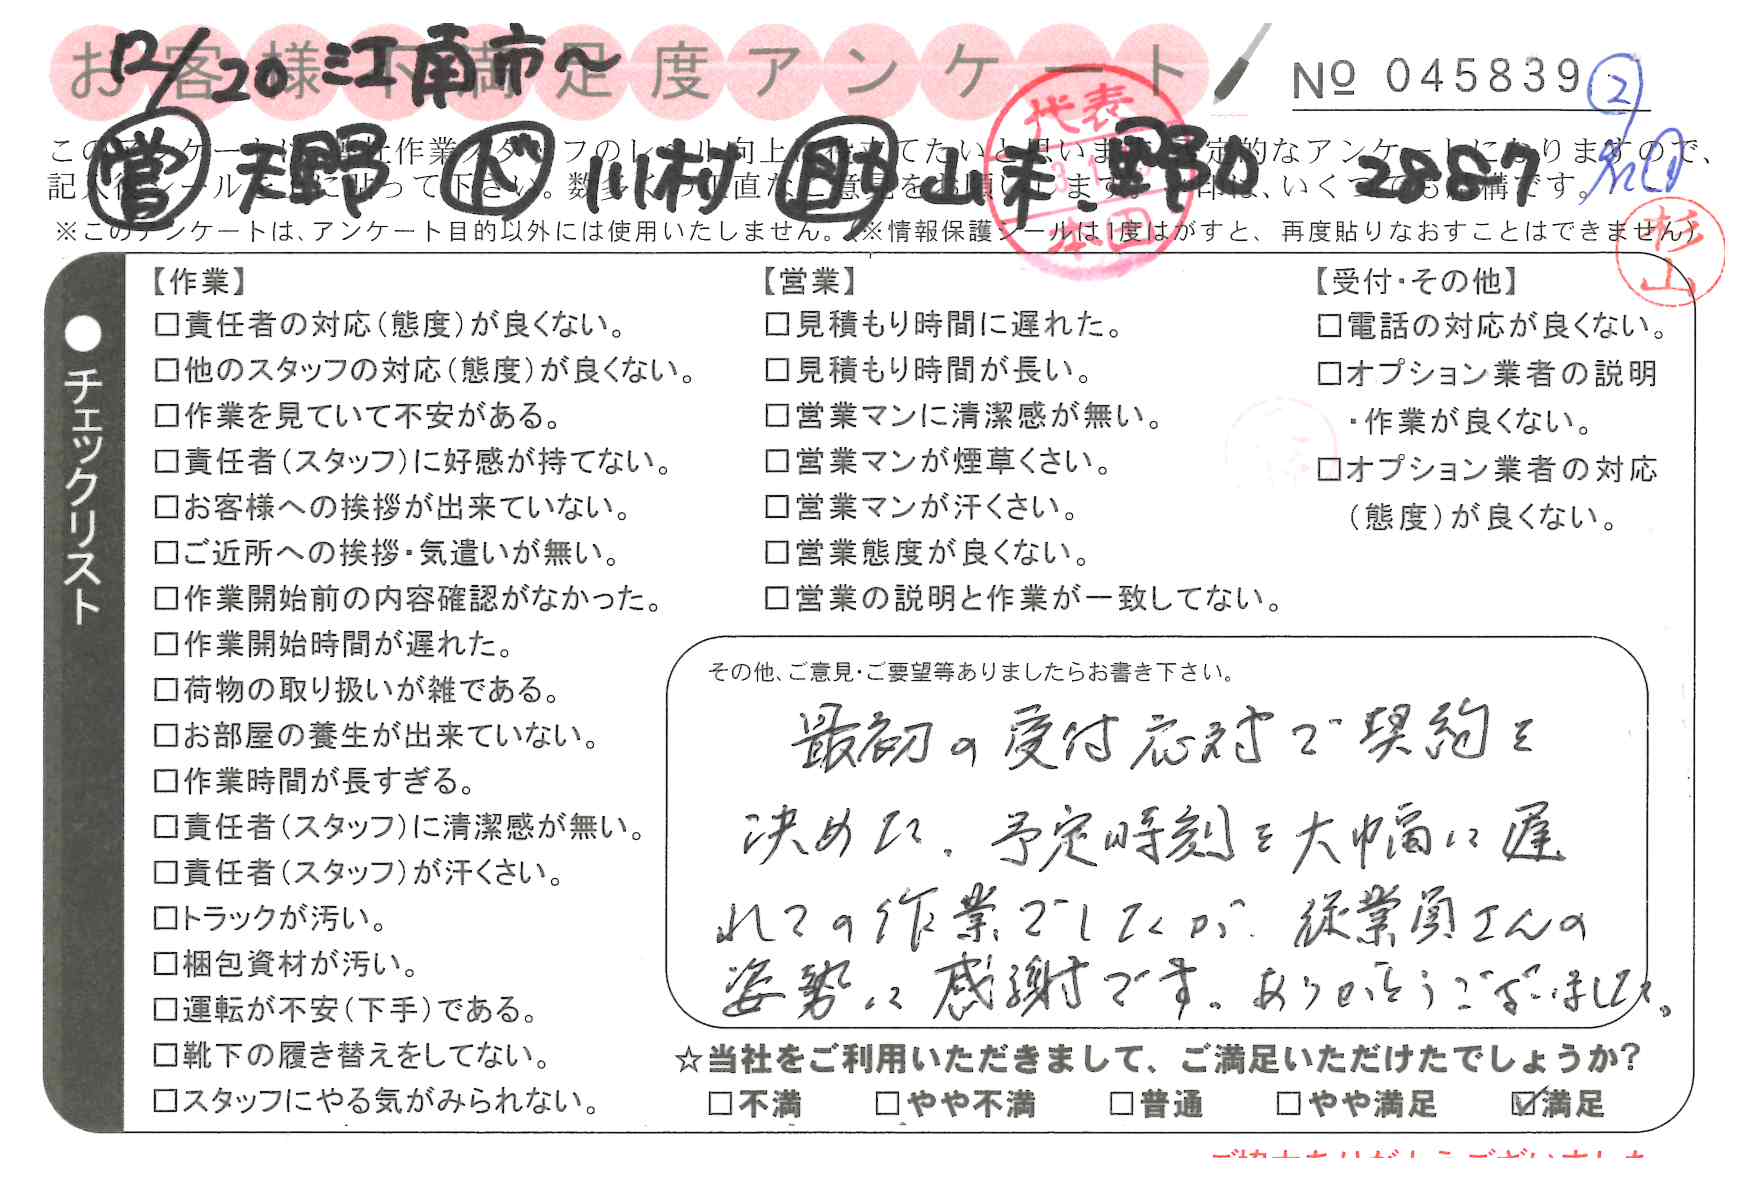 お客様不満足度アンケート
12/20 江南市〜
No 045839 ②
営 天野 ド 川村 助 山本、野口 2887
代表
本田
杉山
※このアンケートは、アンケート目的以外には使用いたしません。(※情報保護シールは1度はがすと、再度貼りなおすことはできません)
●チェックリスト
【作業】
□責任者の対応(態度)が良くない。
□他のスタッフの対応(態度)が良くない。
□作業を見ていて不安がある。
□責任者(スタッフ)に好感が持てない。
□お客様への挨拶が出来ていない。
□ご近所への挨拶・気遣いが無い。
□作業開始前の内容確認がなかった。
□作業開始時間が遅れた。
□荷物の取り扱いが雑である。
□お部屋の養生が出来ていない。
□作業時間が長すぎる。
□責任者(スタッフ)に清潔感が無い。
□責任者(スタッフ)が汗くさい。
□トラックが汚い。
□梱包資材が汚い。
□運転が不安(下手)である。
□靴下の履き替えをしてない。
□スタッフにやる気がみられない。
【営業】
□見積もり時間に遅れた。
□見積もり時間が長い。
□営業マンに清潔感が無い。
□営業マンが煙草くさい。
□営業マンが汗くさい。
□営業態度が良くない。
□営業の説明と作業が一致してない。
【受付・その他】
□電話の対応が良くない。
□オプション業者の説明
・作業が良くない。
□オプション業者の対応
(態度)が良くない。
その他、ご意見・ご要望等ありましたらお書き下さい。
最初の受付応対で契約を
決めた、予定時刻を大幅に遅
れての作業でしたが、従業員さんの
姿勢に感謝です。ありがとうございました。
☆当社をご利用いただきまして、ご満足いただけたでしょうか?
□不満 □やや不満 □普通 □やや満足 ☑満足